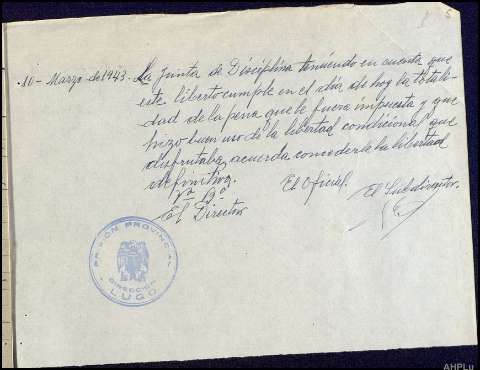 10- Marzo de 1943. La Junta de Disciplina teniendo en cuenta que
este liberto cumple en el día de hoy la totali-
dad de la pena que le fuera impuesta y que
hizo buen uso de la libertad condicional que
disfrutaba, acuerda concederle la libertad
definitiva.
Vº Bº
El Director
El Oficial.
El Subdirector.
PRISIÓN PROVINCIAL
DIRECCION
LUGO
AHPLu